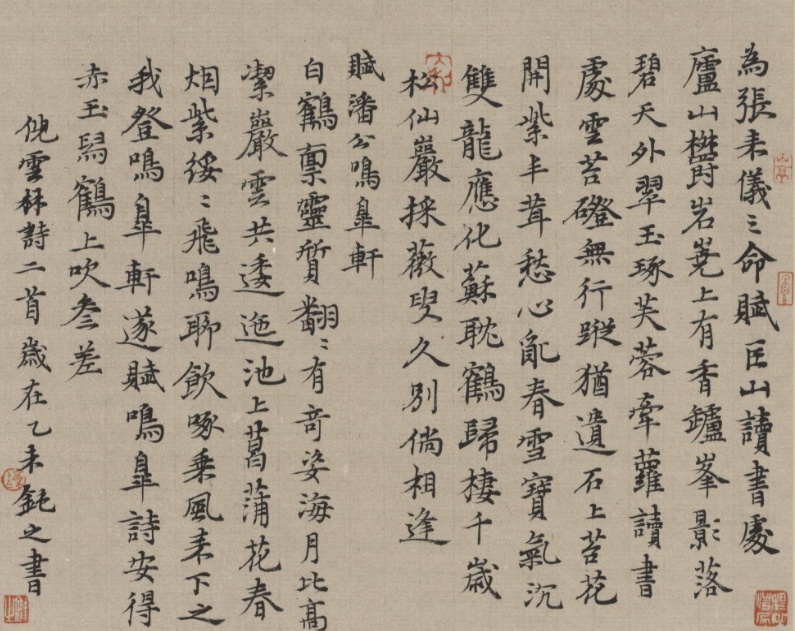 為張来儀〻命賦匡山讀書處
廬山欝岧嶤上有香鑪峯影落
碧天外翠玉琢芙蓉牽蘿讀書
處雲苔磴無行蹤猶遺石上苔花
開紫丰茸愁心亂春雪寶氣沉
雙龍應化蘇耽鶴歸棲千歲
松仙巖採薇叟久别倘相逢
賦潘公鳴臯軒
白鶴稟靈質翻〻有竒姿海月比髙
潔巖雲共逶迤池上菖蒲花春
烟紫綏〻飛鳴聊飲啄乘風来下之
我登鳴臯軒遂賦鳴臯詩安得
赤玉舄鶴上吹叅差
倪雲林詩二首歲在乙未鈍之書